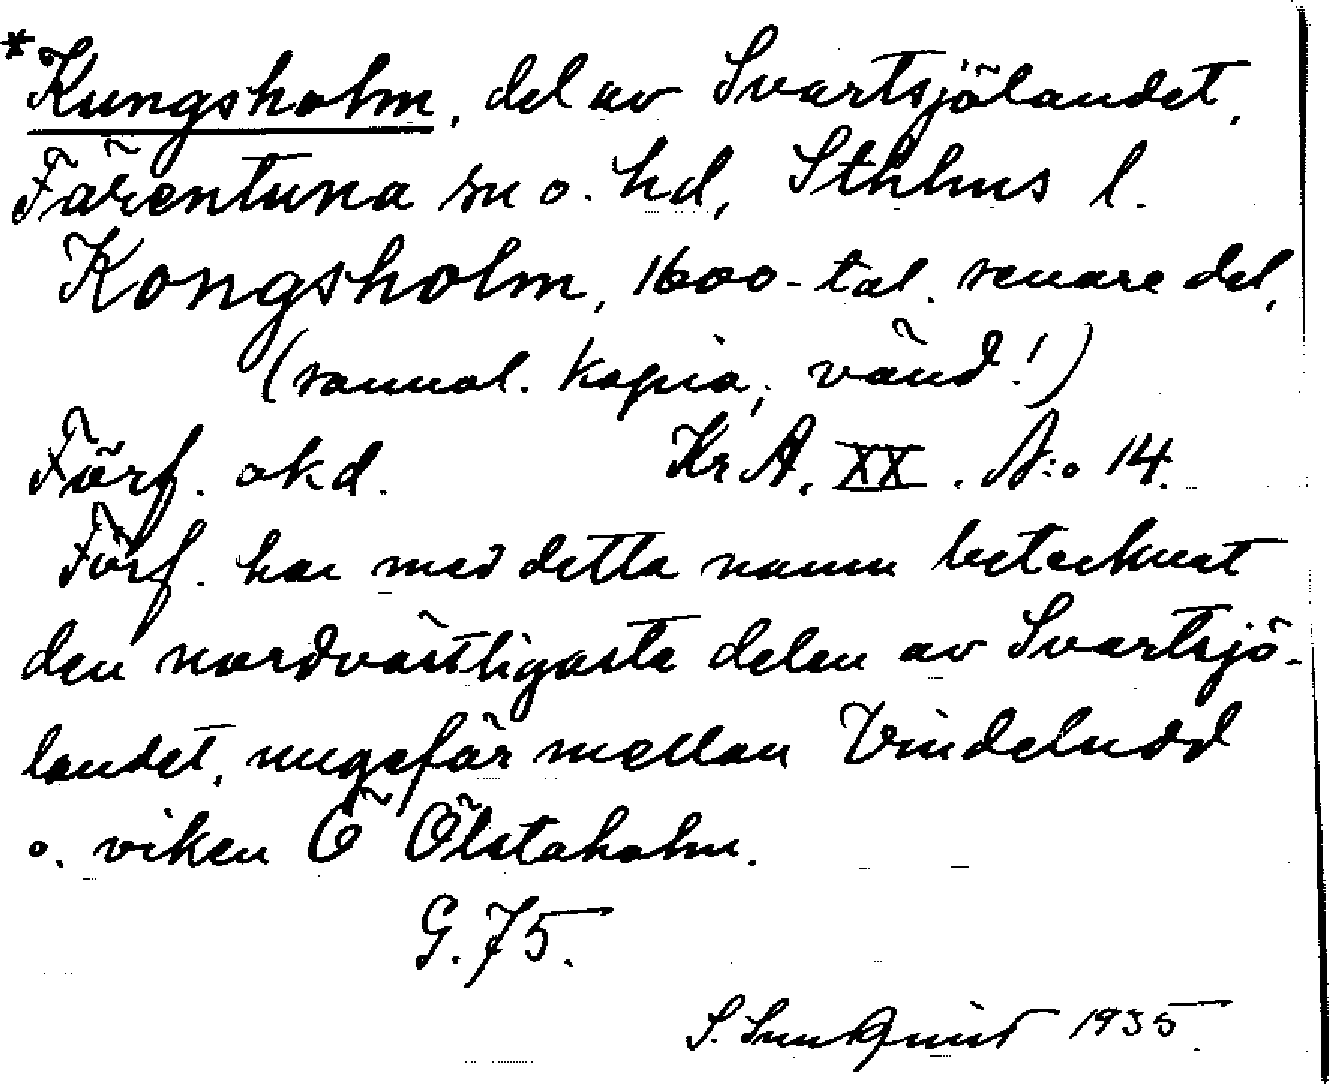 *Kungsholm, del av Svartsjölandet,
Färentuna sn o. hd, Sthlms l.
Kongsholm, 1600-tal. senare del,
(samml. kopia, vänd!)
Förf. okd. Kr A. XX. N:o 14.
Förf. har med detta namn betecknat
den nordvästligaste delen av Svartsjö-
landet, ungefär mellan Vindeludd
o. viken Ö Ölstaholm.
G. 75.
S. 1935